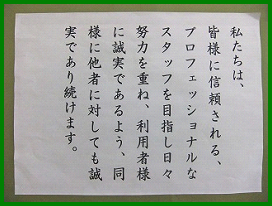 私たちは、
皆様に信頼される、
プロフェッショナルな
スタッフを目指し日々
努力を重ね、利用者様
に誠実であるよう、同
様に他者に対しても誠
実であり続けます。